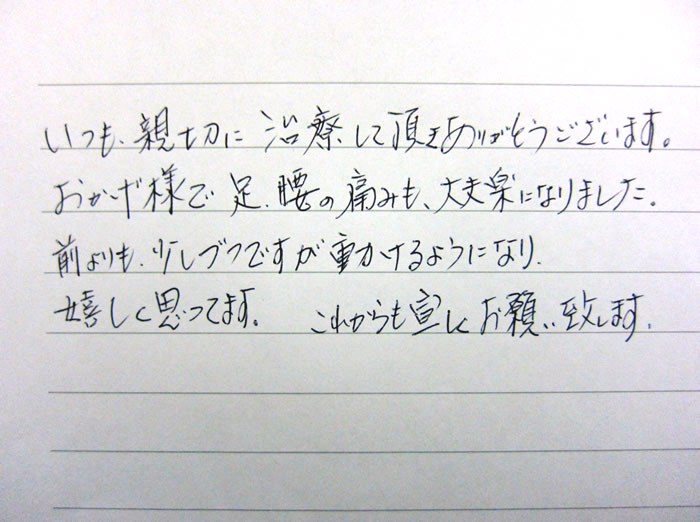 いつも、親切に治療して頂きありがとうございます。
おかげ様で足、腰の痛みも、大丈楽になりました。
前よりも、少しづつですが動かけるようになり、
嬉しく思ってます。 これからも宜しくお願い致します。